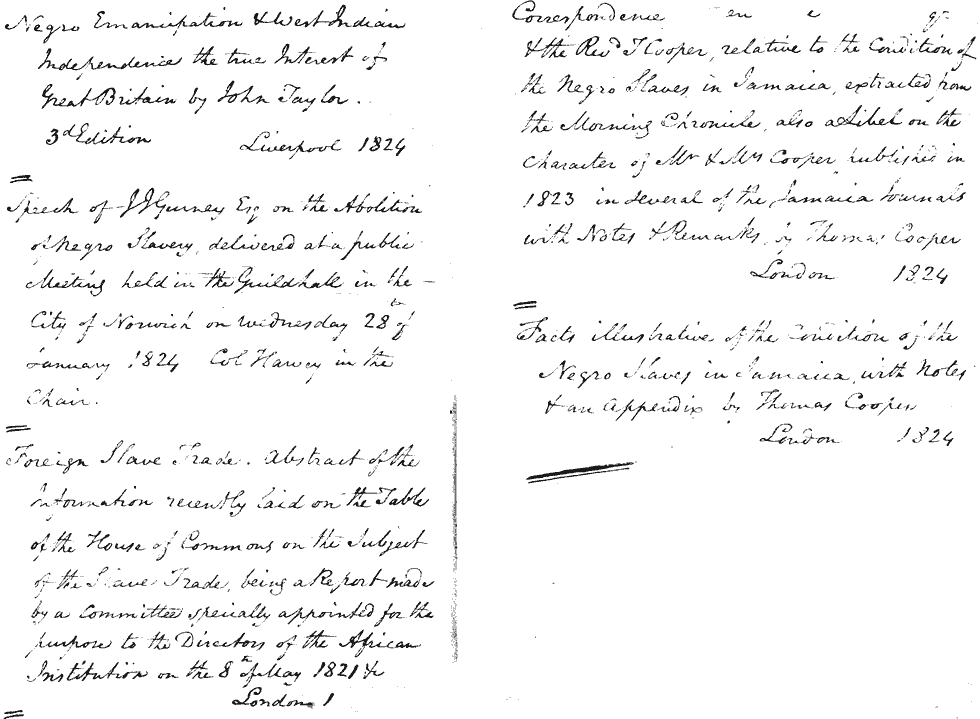 Negro Emancipation & West Indian
Independence the true Interest of
Great Britain by John Taylor.
3d Edition Liverpool 1824
Speech of J J Gurney Esq on the Abolition
of Negro Slavery, delivered at a public
Meeting held in the Guildhall in the
City of Norwich on Wednesday 28th of
January 1824 Col Harvey in the
Chair.
Foreign Slave Trade. Abstract of the
Information recently laid on the Table
of the House of Commons on the Subject
of the Slave Trade, being a Report made
by a Committee specially appointed for the
purpose to the Directors of the African
Institution on the 8th of May 1821 &c
London 1
Correspondence
& the Revd T Cooper, relative to the Condition of
the Negro Slaves in Jamaica, extracted from
the Morning Chronicle, also a Libel on the
Character of Mr & Mrs Cooper published in
1823 in several of the Jamaica Journals
with Notes & Remarks, by Thomas Cooper
London 1824
Facts illustrative of the Condition of the
Negro Slaves in Jamaica, with Notes
& an Appendix by Thomas Cooper
London 1824